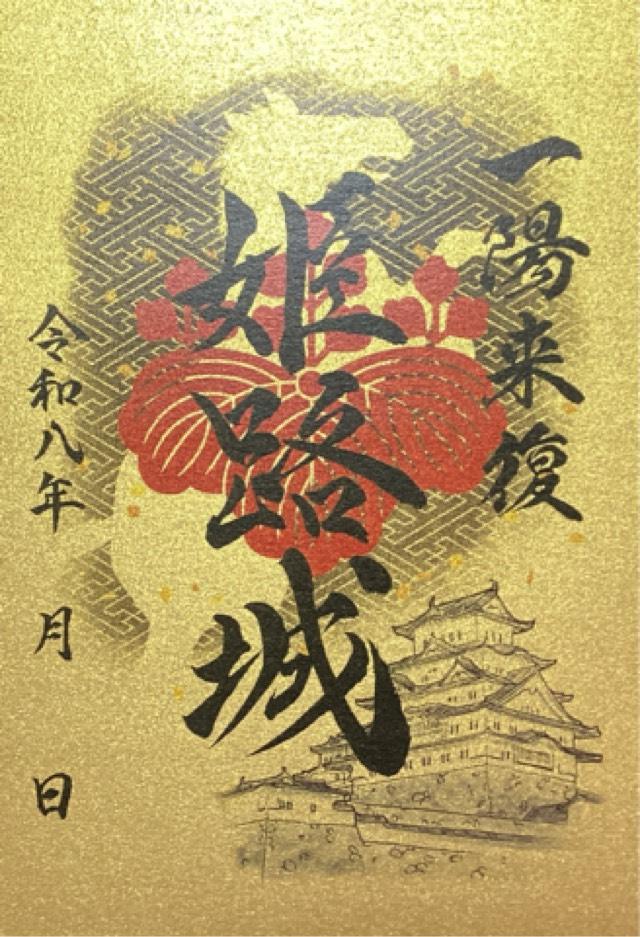 一陽来復
姫路城
令和八年　月　日